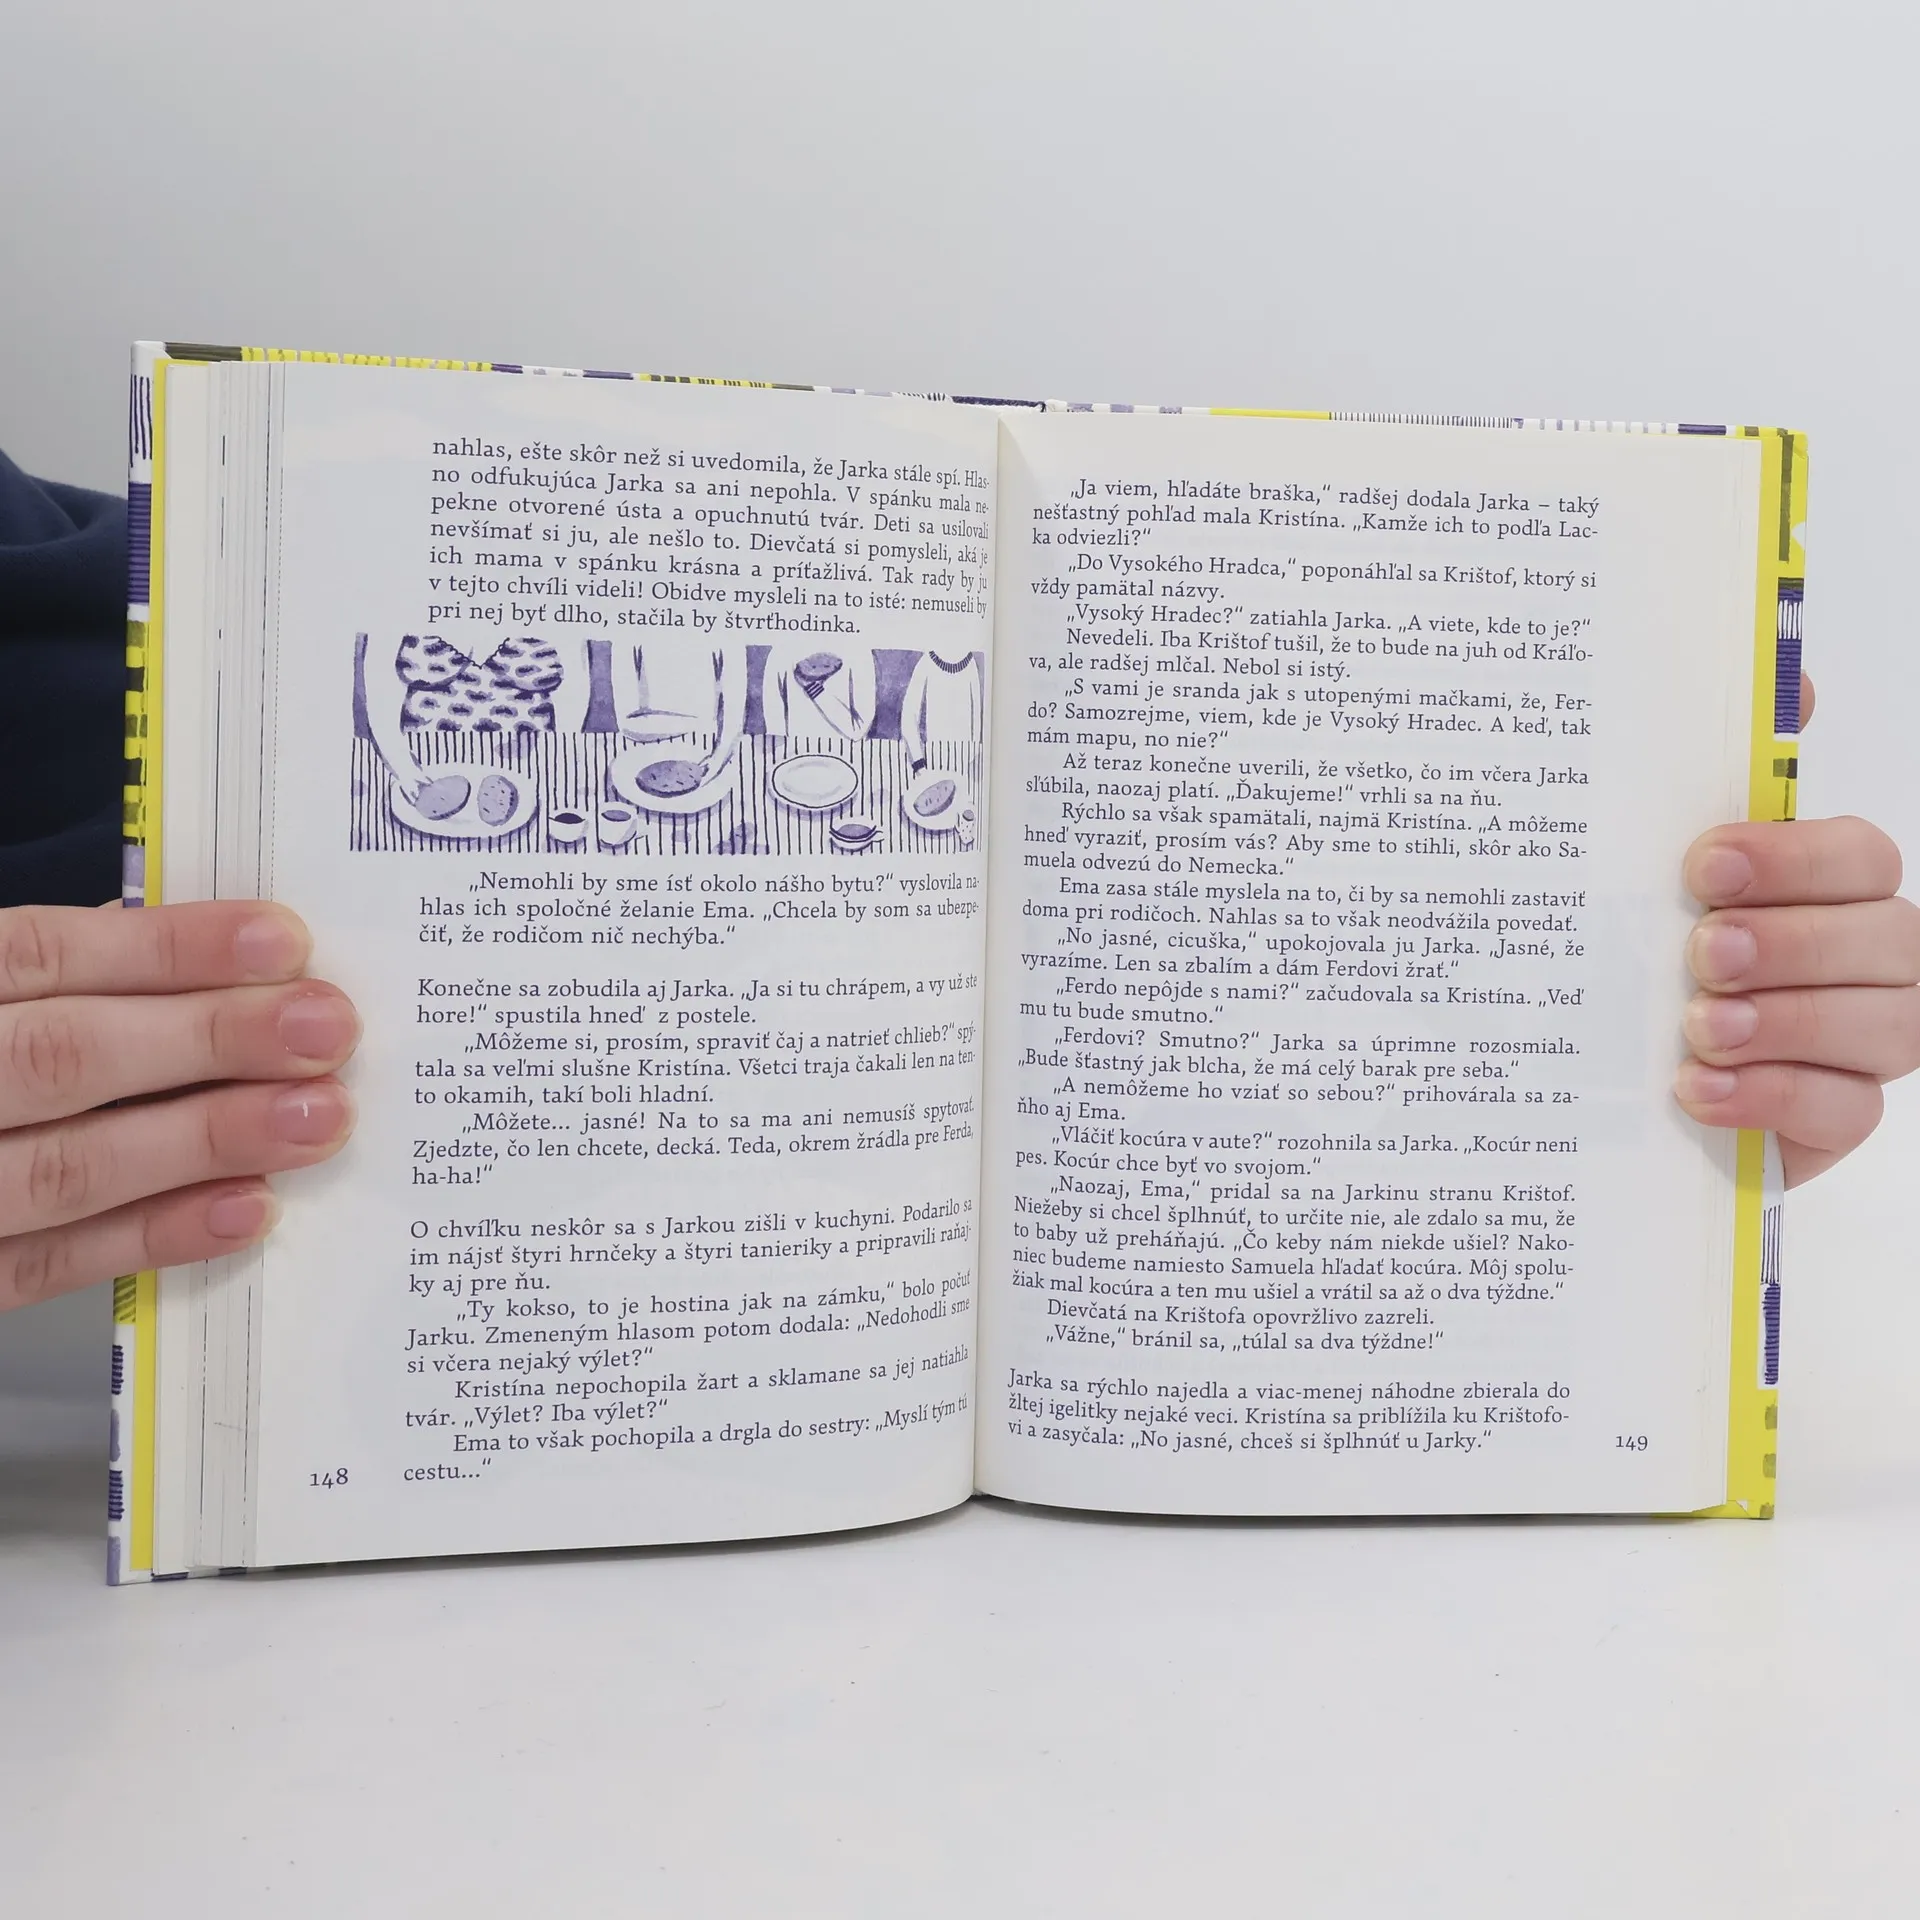 nahlas, ešte skôr než si uvedomila, že Jarka stále spí. Hlas-
no odfukujúca Jarka sa ani nepohla. V spánku mala ne-
pekne otvorené ústa a opuchnutú tvár. Deti sa usilovali
nevšímať si ju, ale nešlo to. Dievčatá si pomysleli, aká je
ich mama v spánku krásna a príťažlivá. Tak rady by ju
v tejto chvíli videli! Obidve mysleli na to isté: nemuseli by
pri nej byť dlho, stačila by štvrťhodinka.
„Nemohli by sme ísť okolo nášho bytu?“ vyslovila na-
hlas ich spoločné želanie Ema. „Chcela by som sa ubezpe-
čiť, že rodičom nič nechýba.“
Konečne sa zobudila aj Jarka. „Ja si tu chrápem, a vy už ste
hore!“ spustila hneď z postele.
„Môžeme si, prosím, spraviť čaj a natrieť chlieb?“ spý-
tala sa veľmi slušne Kristína. Všetci traja čakali len na ten-
to okamih, takí boli hladní.
„Môžete... jasné! Na to sa ma ani nemusíš spytovať.
Zjedzte, čo len chcete, decká. Teda, okrem žrádla pre Ferda,
ha-ha!“
O chvíľku neskôr sa s Jarkou zišli v kuchyni. Podarilo sa
im nájsť štyri hrnčeky a štyri tanieriky a pripravili raňaj-
ky aj pre ňu.
„Ty kokso, to je hostina jak na zámku,“ bolo počuť
Jarku. Zmeneným hlasom potom dodala: „Nedohodli sme
si včera nejaký výlet?“
Kristína nepochopila žart a sklamane sa jej natiahla
tvár. „Výlet? Iba výlet?“
Ema to však pochopila a drgla do sestry: „Myslí tým tú
cestu...“
148
„Ja viem, hľadáte braška,“ radšej dodala Jarka – taký
nešťastný pohľad mala Kristína. „Kamže ich to podľa Lac-
ka odviezli?“
„Do Vysokého Hradca,“ poponáhľal sa Krištof, ktorý si
vždy pamätal názvy.
„Vysoký Hradec?“ zatiahla Jarka. „A viete, kde to je?“
Nevedeli. Iba Krištof tušil, že to bude na juh od Kráľo-
va, ale radšej mlčal. Nebol si istý.
„S vami je sranda jak s utopenými mačkami, že, Fer-
do? Samozrejme, viem, kde je Vysoký Hradec. A keď, tak
mám mapu, no nie?“
Až teraz konečne uverili, že všetko, čo im včera Jarka
sľúbila, naozaj platí. „Ďakujeme!“ vrhli sa na ňu.
Rýchlo sa však spamätali, najmä Kristína. „A môžeme
hneď vyraziť, prosím vás? Aby sme to stihli, skôr ako Sa-
muela odvezú do Nemecka.“
Ema zasa stále myslela na to, či by sa nemohli zastaviť
doma pri rodičoch. Nahlas sa to však neodvážila povedať.
„No jasné, cicuška,“ upokojovala ju Jarka. „Jasné, že
vyrazíme. Len sa zbalím a dám Ferdovi žrať.“
„Ferdo nepôjde s nami?“ začudovala sa Kristína. „Veď
mu tu bude smutno.“
„Ferdovi? Smutno?“ Jarka sa úprimne rozosmiala.
„Bude šťastný jak blcha, že má celý barak pre seba.“
„A nemôžeme ho vziať so sebou?“ prihovárala sa za-
ňho aj Ema.
„Vláčiť kocúra v aute?“ rozohnila sa Jarka. „Kocúr neni
pes. Kocúr chce byť vo svojom.“
„Naozaj, Ema,“ pridal sa na Jarkinu stranu Krištof.
Niežeby si chcel šplhnúť, to určite nie, ale zdalo sa mu, že
to baby už preháňajú. „Čo keby nám niekde ušiel? Nako-
niec budeme namiesto Samuela hľadať kocúra. Môj spolu-
žiak mal kocúra a ten mu ušiel a vrátil sa až o dva týždne.“
Dievčatá na Krištofa opovržlivo zazreli.
„Vážne,“ bránil sa, „túlal sa dva týždne!“
Jarka sa rýchlo najedla a viac-menej náhodne zbierala do
žltej igelitky nejaké veci. Kristína sa priblížila ku Krištofo-
vi a zasyčala: „No jasné, chceš si šplhnúť u Jarky.“
149